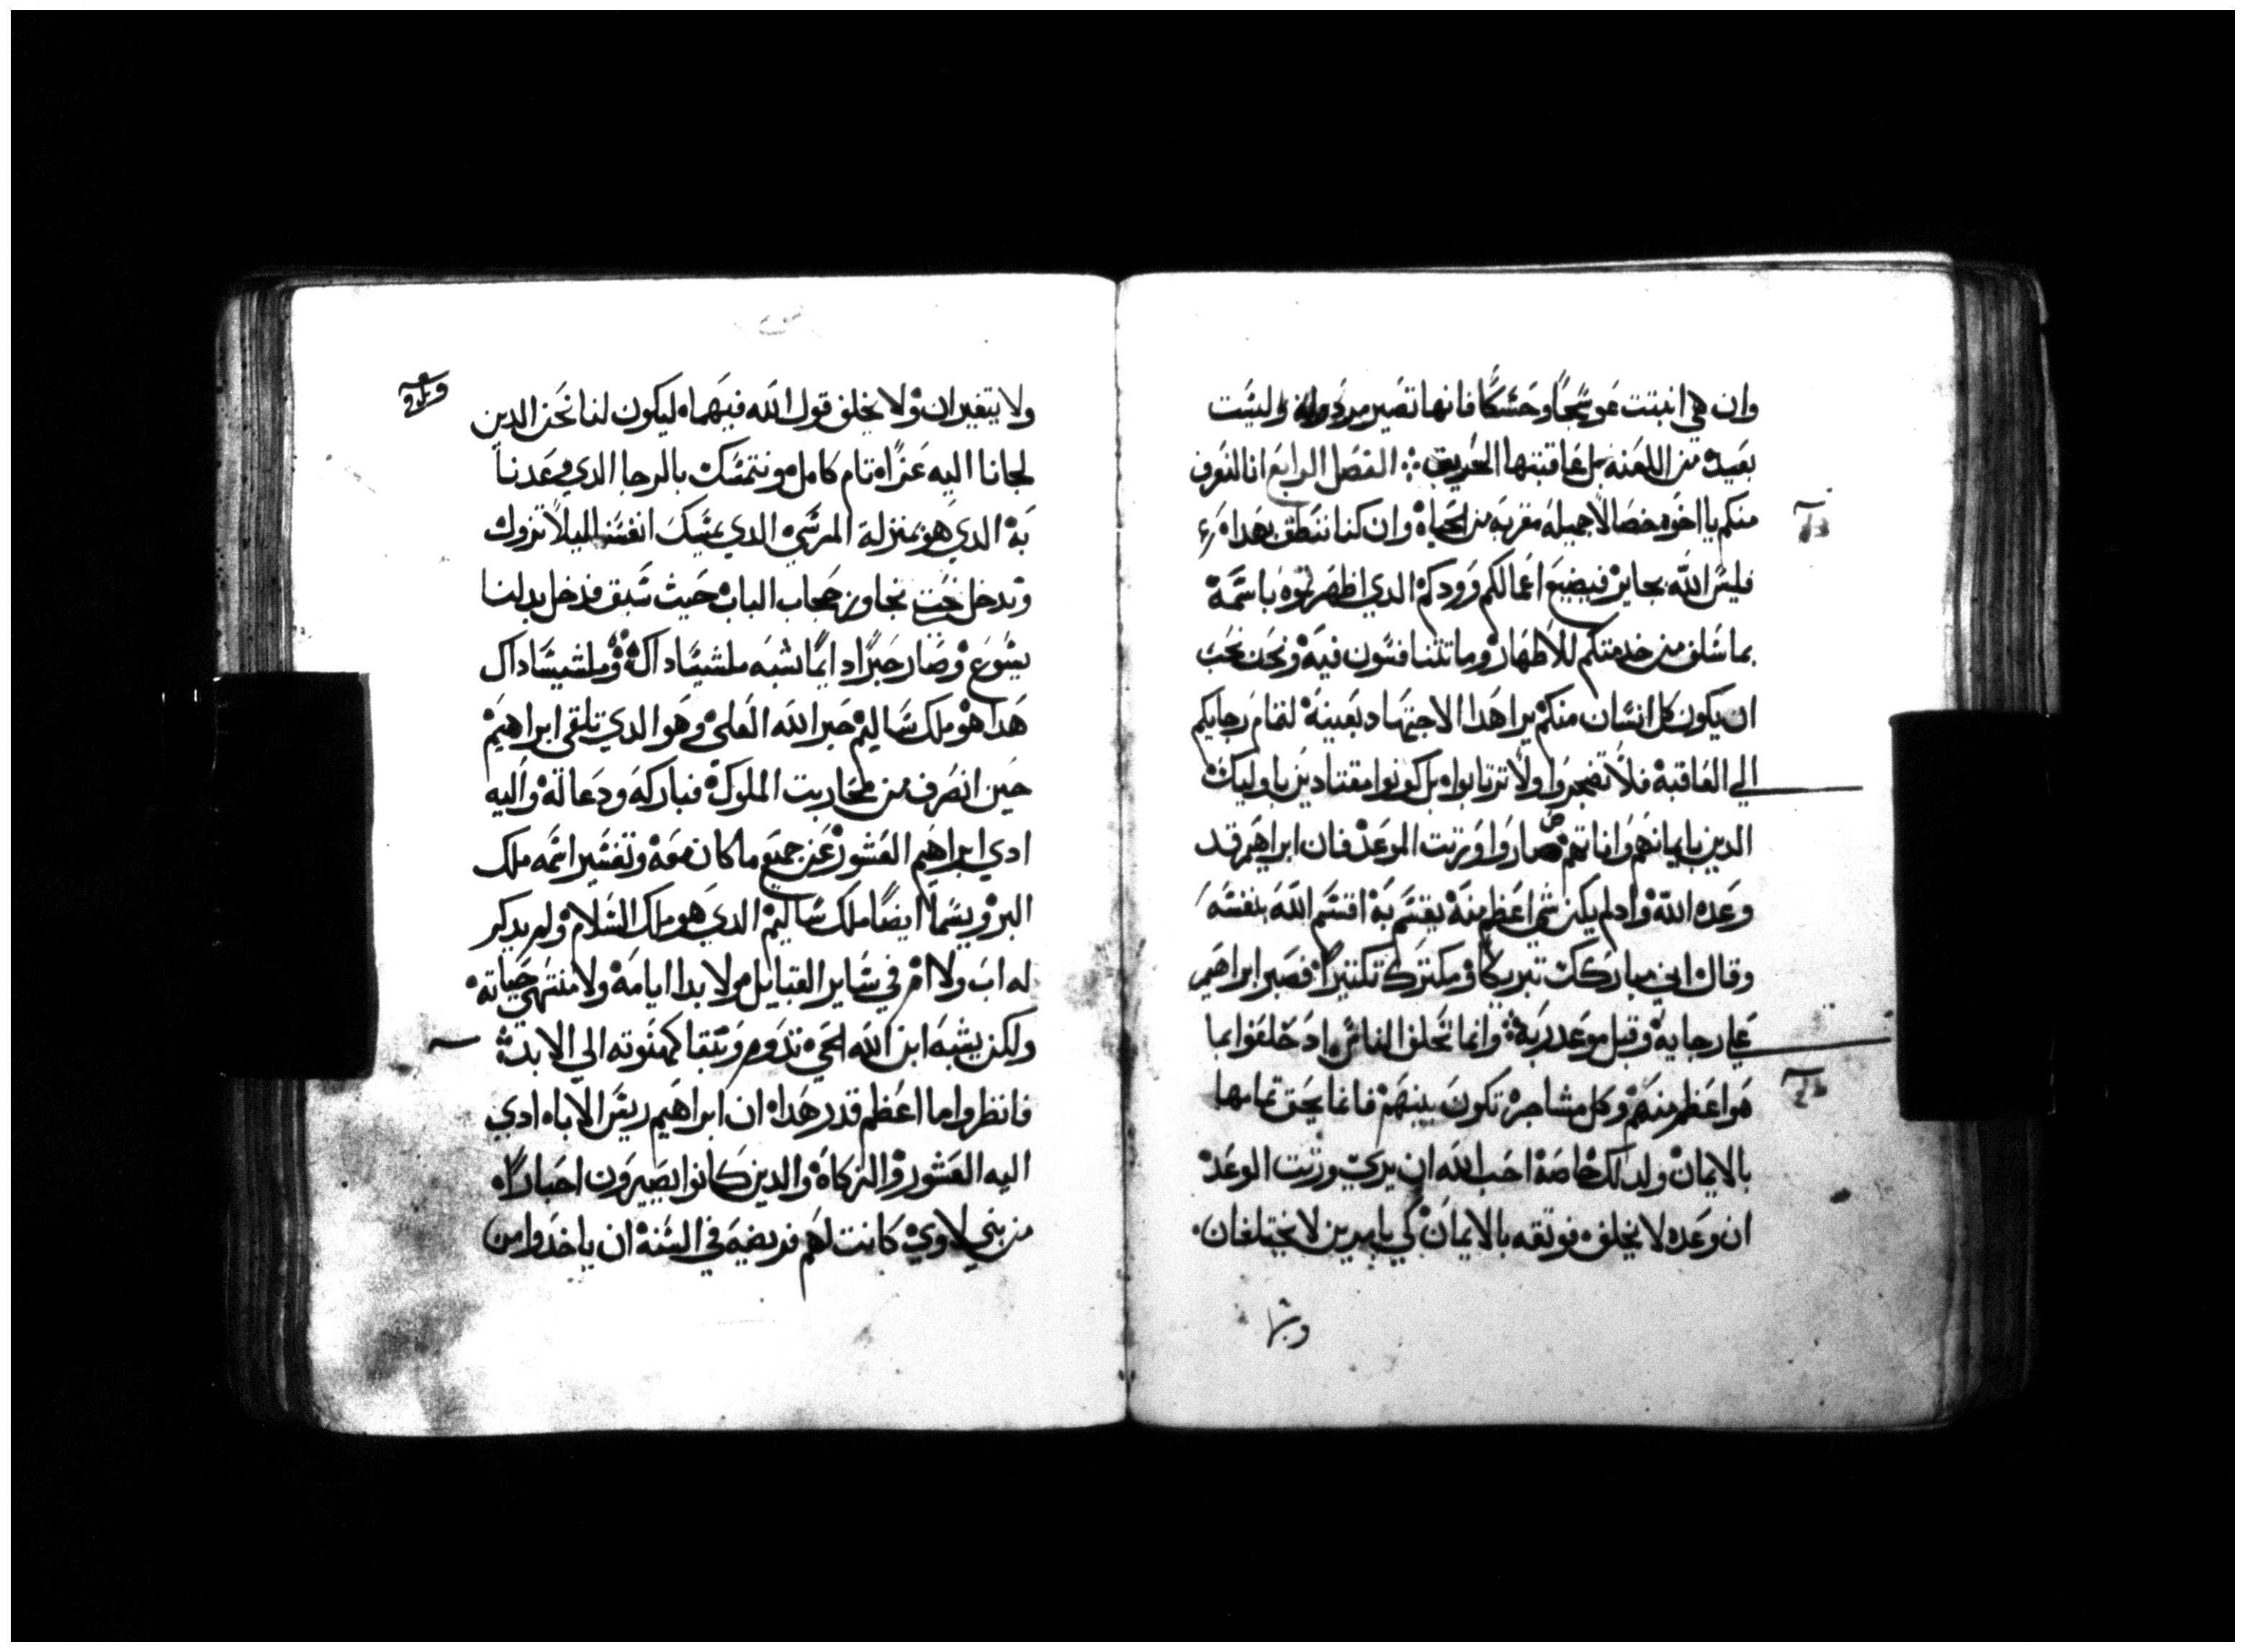 وان هي انبتت عوسجاً وحسكاً فانها تصير مردوله وليست
بعيده من اللعنه بل عاقبتها الحريق ⁘ الفصل الرابع انا لنعرف
منكم يا اخوه خصالاً جميله مقربه من الحياه وان كنا ننطق بهدا
فليس الله بجاير فيضيع اعمالكم وودكم الدي اظهرتموه باسمه
بما سلف من خدمتكم للاطهار وما تتنافسون فيه ونحن نحب
ان يكون كل انسان منكم يرا هدا الاجتهاد بعينه لتمام رجايكم
الي العاقبه فلا تضجروا ولا ترتابوا بل كونوا مقتادين باوليك
الدين بايمانهم واناتهم صاروا ورثت الموعد فان ابراهيم قد
وعده الله واد لم يكن شي اعظم منه يقسم به اقسم الله بنفسه
وقال اني مباركك تبريكاً ومكترك تكتيراً فصبر ابراهيم
علي رجايه وقبل موعد ربه ⁘ وانما تحلف الناس اد حلفوا بما
هو اعظم منهم وكل مشاجره تكون بينهم فانما يحق تمامها
بالايمان ولدلك خاصه احب الله ان يري ورثت الوعد
ان وعده لا يخلف فوثقه بالايمان كي بامرين لا يختلفان
ولا يتغيران ولا يخلف قول الله فيهما ليكون لنا نحن الدين
لجانا اليه عزاه تام كامل ونتمسك بالرجا الدي وعدنا
به الدي هو بمنزلة المرسي الدي يمسك انفسنا ليلا تزول
وتدخل حتي تجاوز حجاب الباب حيث سبق فدخل بدلنا
يسوع وصار حبراً دايماً شبه ملشيساداك وملشيساداك
هدا هو ملك ساليم حبر الله العلي وهو الدي تلقي ابراهيم
حين انصرف من محاربت الملوك فباركه ودعا له واليه
ادي ابراهيم العشور عن جميع ما كان معه وتفسير اسمه ملك
البر ويسما ايضاً ملك ساليم الدي هو ملك السلام ولم يدكر
له اب ولا ام في ساير القبايل ولا بدا ايامه ولا منتهي حياته
ولكن يشبه ابن الله الحي تدوم وتبقا كهنوته الي الابد
فانظروا ما اعظم قدر هدا ان ابراهيم ريس الابا ادي
اليه العشور والزكاه والدين كانوا يصيرون احباراً
من بني لاوي كانت لهم فريضه في السنه ان ياخدوا من